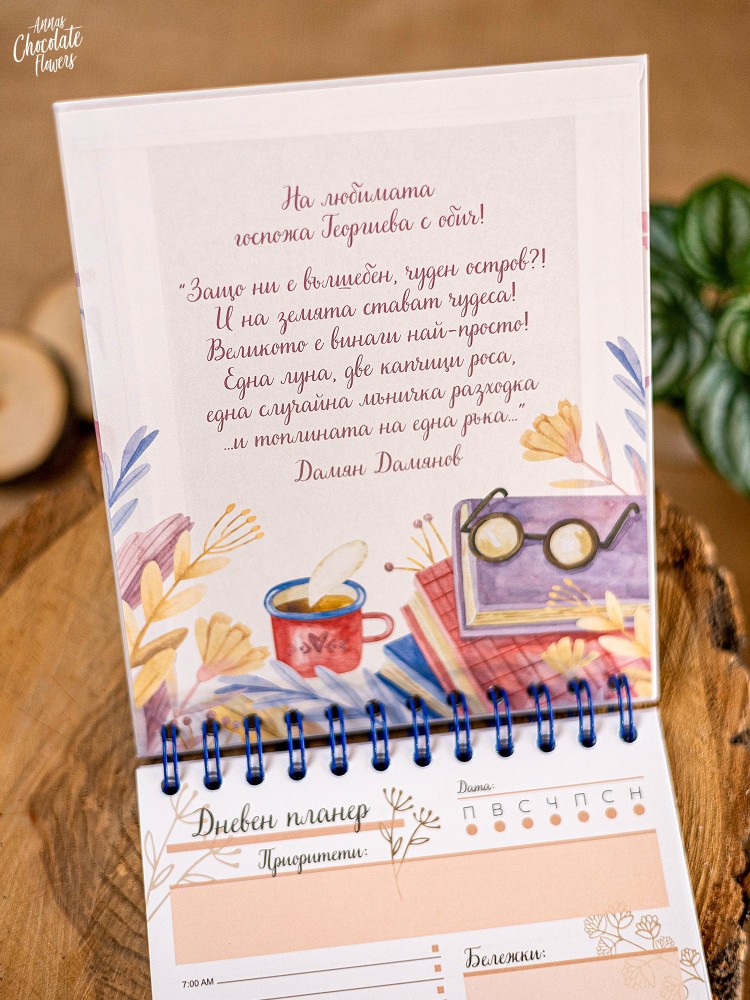 Annas
Chocolate
Flowers
На любимата
госпожа Георгиева с обич!
“Защо ни е вълшебен, чуден остров?!
И на земята стават чудеса!
Великото е винаги най-просто!
Една луна, две капчици роса,
една случайна мъничка разходка
...и топлината на една ръка...”
Дамян Дамянов
Дневен планер
Дата:
П В С Ч П С Н
Приоритети:
7:00 AM
Бележки: